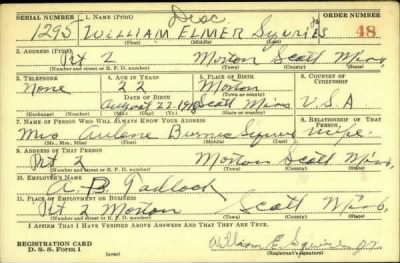 Disc
SERIAL NUMBER 1. NAME (Print) ORDER NUMBER
1295 WILLIAM ELMER SQUIRES Jr 48
2. ADDRESS (Print)
Rt 2 Morton Scott Miss
(Number and street or R. F. D. number) (Town) (County) (State)
3. TELEPHONE 4. AGE IN YEARS 5. PLACE OF BIRTH 6. COUNTRY OF CITIZENSHIP
None 22 Morton
DATE OF BIRTH (Town or county)
August 22 Scott Miss U.S.A
(Exchange) (Number) (Mo.) (Day) (Yr.) (State or country)
7. NAME OF PERSON WHO WILL ALWAYS KNOW YOUR ADDRESS 8. RELATIONSHIP OF THAT PERSON
Mrs Squires wife
(Mr., Mrs., Miss) (First) (Middle) (Last)
9. ADDRESS OF THAT PERSON
Rt 2 Morton Scott Miss
(Number and street or R. F. D. number) (Town) (County) (State)
10. EMPLOYER'S NAME
A. B.
11. PLACE OF EMPLOYMENT OR BUSINESS
Rt 2 Morton Scott Miss
(Number and street or R. F. D. number) (Town) (County) (State)
I AFFIRM THAT I HAVE VERIFIED ABOVE ANSWERS AND THAT THEY ARE TRUE.
REGISTRATION CARD William E. Squires Jr.
D. S. S. Form 1 (over) (Registrant's signature)